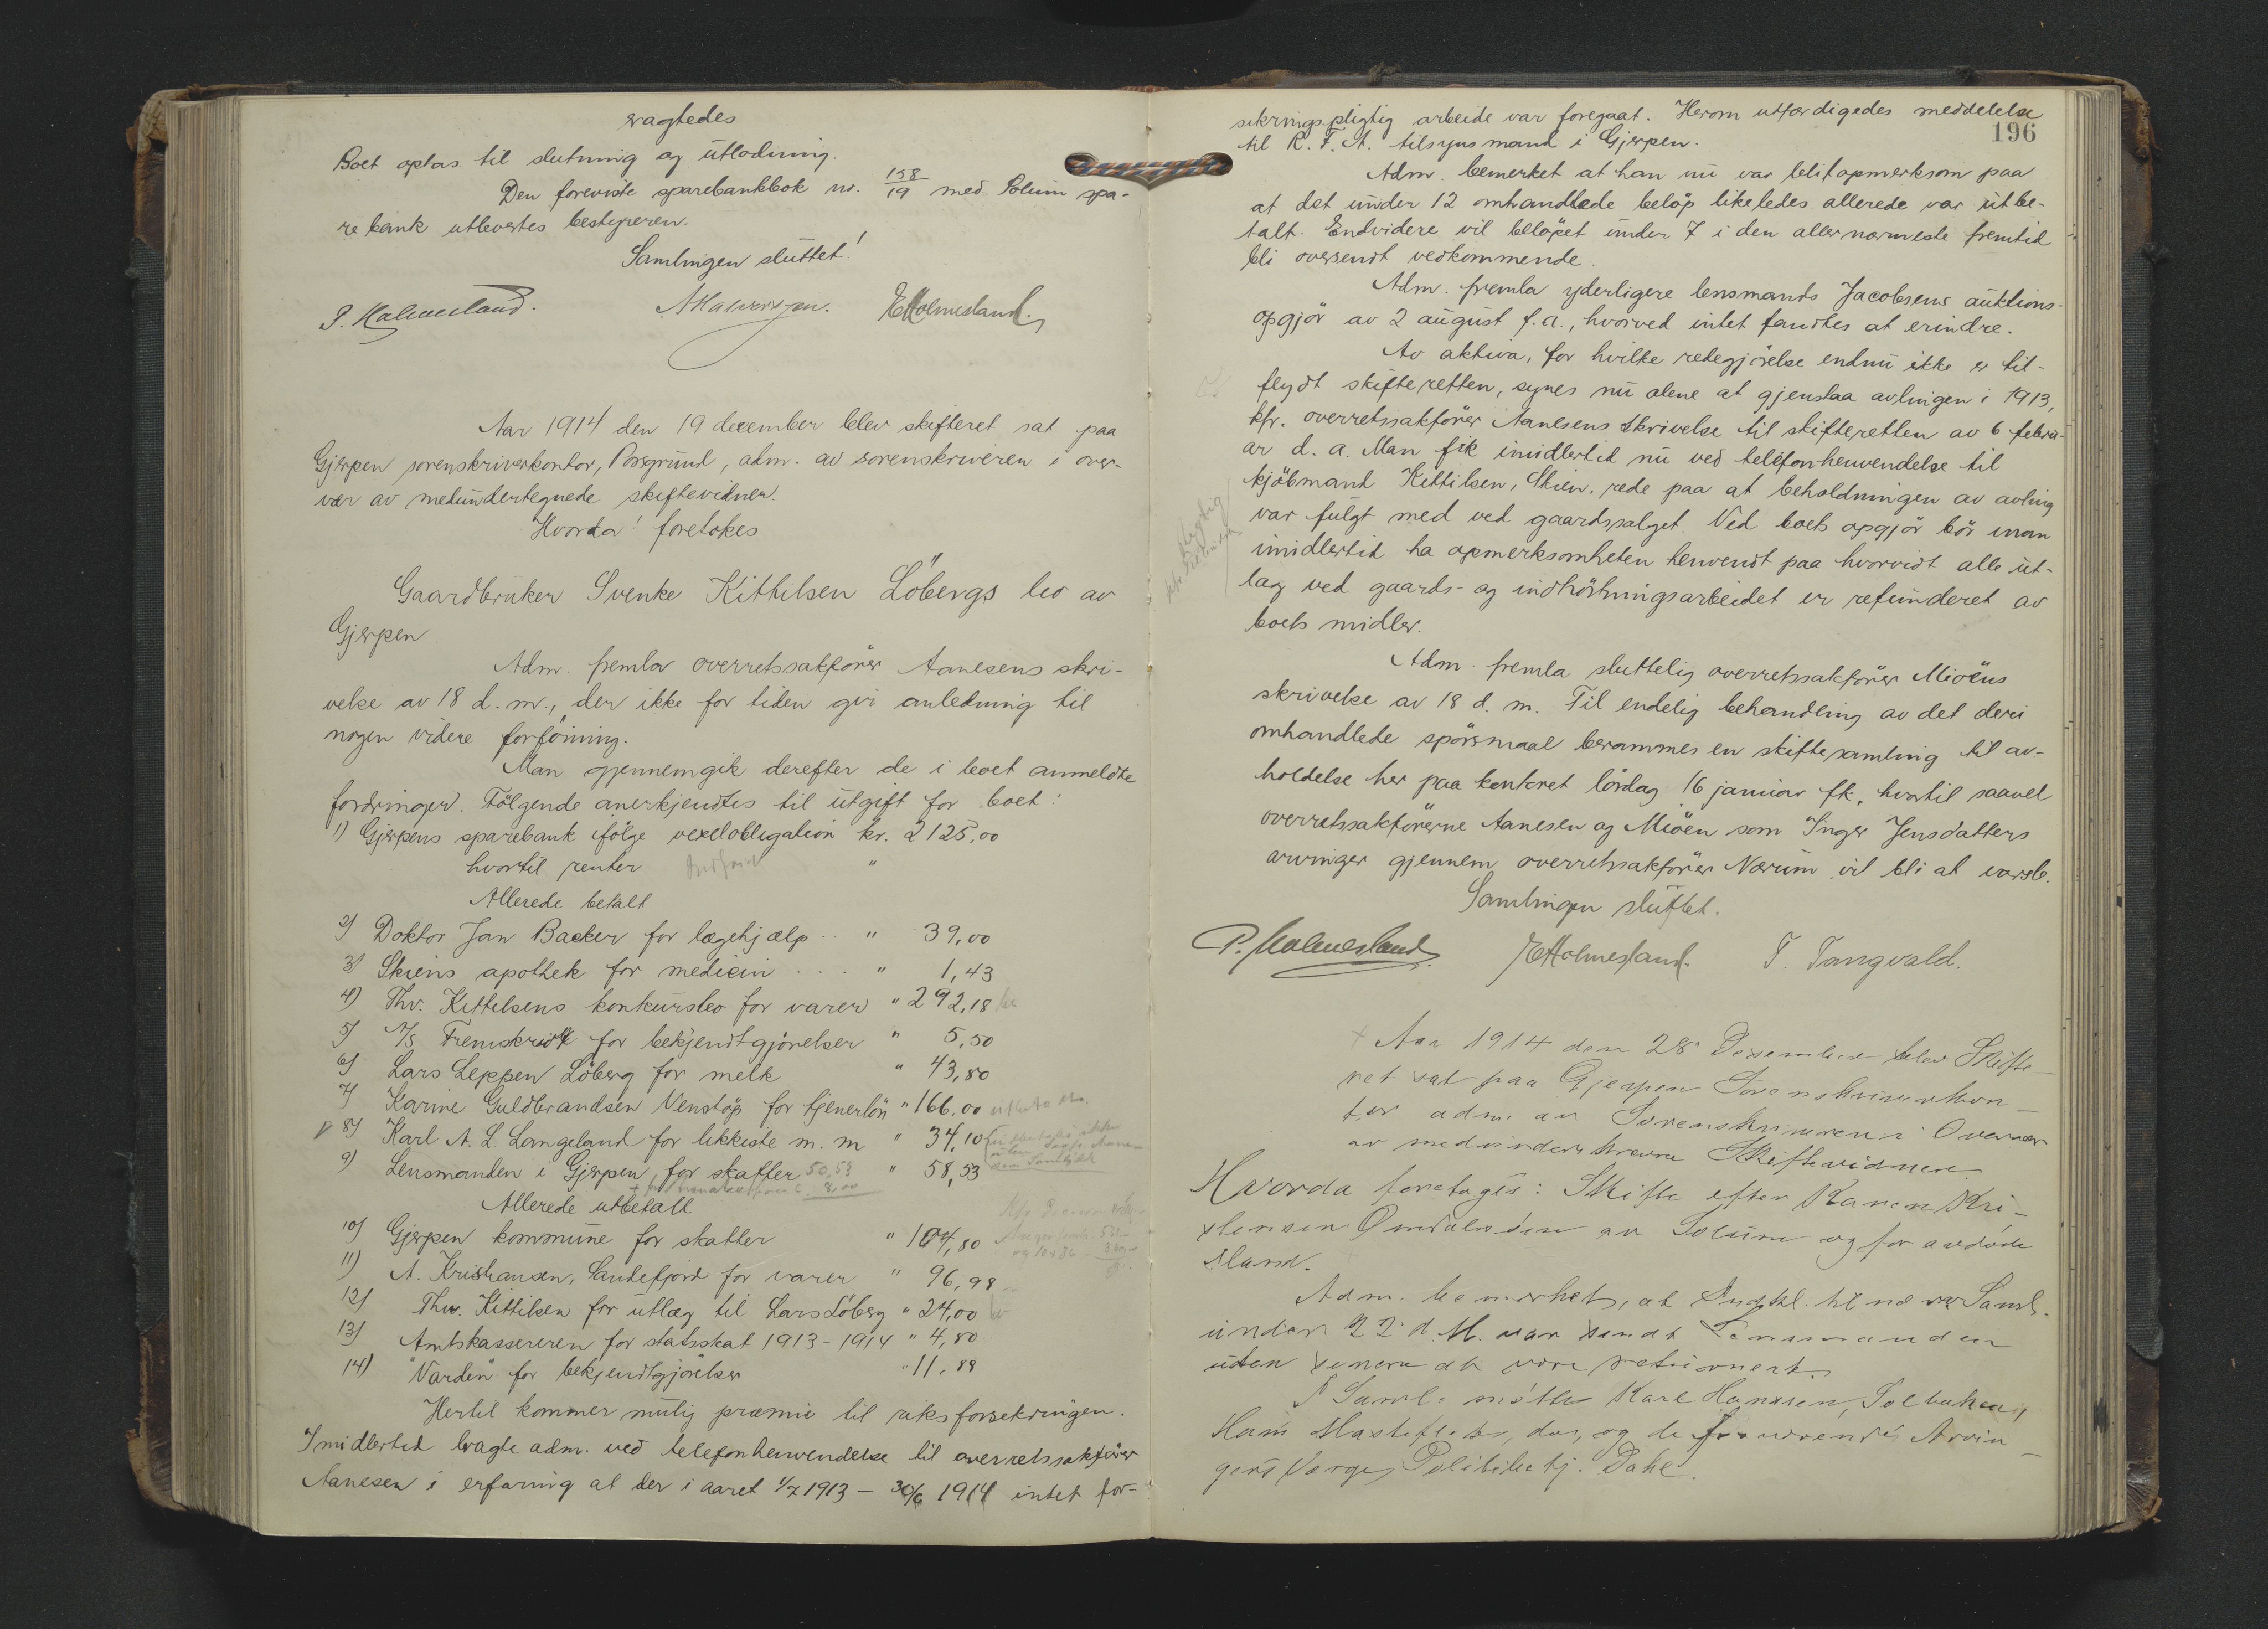 vagtedes
Boet optas til slutning og utlodning.
Den foreviste sparebankbok nr. 158/19 med Solum spa-
rebank utlevertes bestyreren.
Samlingen sluttet!
P. Holmesland. A Halvorsen. E Holmesland.
Aar 1914 den 19 december blev skifteret sat paa
Gjerpen sorenskriverkontor, Porsgrund, adm. av sorenskriveren i over-
vær av medundertegnede skiftevidner.
Hvorda! foretokes
Gaardbruker Svenke Kittilsen Löbergs bo av
Gjerpen.
Adm. fremla overretssakförer Aanesens skri-
velse av 18 d. m., der ikke for tiden gir anledning til
nogen videre forföining.
Man gjennemgik derefter de i boet anmeldte
fordringer. Fölgende anerkjendtes til utgift for boet:
1) Gjerpens sparebank ifölge vexelobligation kr. 2125,00
hvortil renter "
Allerede betalt
2) Doktor Jan Backer for lægehjælp .. " 39,00
3) Skiens apothek for medicin .... " 1,43
4) Thv. Kittelsens konkursbo for varer " 292,18
5) A/S Fremskridt for bekjendtgjörelser " 5,50
6) Lars Leppen Löberg for melk " 43,80
7) Karine Guldbrandsen Venstöp for tjenerlön " 166,00
8) Karl A. L. Langeland for likkiste m. m " 34,10
9) Lensmanden i Gjerpen, for skatter 50,53 " 58,53
8,00
Allerede utbetalt
10) Gjerpen kommune for skatter " 104,80
11) A. Kristiansen, Sandefjord for varer " 96,98
12) Thv. Kittilsen for utlæg til Lars Löberg " 24,00
13) Amtskassereren for statsskat 1913-1914 " 4,80
14) "Varden" for bekjendtgjörelser " 11.88
Hertil kommer mulig præmie til riksforsikringen.
Imidlertid bragte adm. ved telefonhenvendelse til overretssakförer
Aanesen i erfaring at der i aaret 1/7 1913 – 30/6 1914 intet for-
196
sikringspligtig arbeide var foregaat. Herom utfærdigedes meddelelse
til R. F. A. tilsynsmand i Gjerpen.
Adm. bemerket at han nu var blit opmerksom paa
at det under 12 omhandlede belöp likeledes allerede var utbe-
talt. Endvidere vil belöpet under 7 i den allernærmeste fremtid
bli oversendt vedkommende.
Adm. fremla yderligere lensmands Jacobsens auktions-
opgjör av 2 august f.a., hvorved intet fandtes at erindre.
Av aktiva, for hvilke redegjörelse endnu ikke er til-
flydt skifteretten, synes nu alene at gjenstaa avlingen i 1913,
kfr. overretssakförer Aanesens skrivelse til skifteretten av 6 febru-
ar d. a. Man fik imidlertid nu ved telefonhenvendelse til
kjöbmand Kittilsen, Skien, rede paa at beholdningen av avling
var fulgt med ved gaardssalget. Ved boets opgjör bör man
imidlertid ha opmerksomheten henvendt paa hvorvidt alle ut-
læg ved gaards- og indhöstningsarbeidet er refunderet av
boets midler.
Adm. fremla sluttelig overretssakförer Miöens
skrivelse av 18 d. m. Til endelig behandling av det deri
omhandlede spörsmaal berammes en skiftesamling til av-
holdelse her paa kontoret lördag 16 januar fk., hvortil saavel
overretssakförerne Aanesen og Miöen som Inger Jensdatters
arvinger gjennem overretssakförer Nærum vil bli at varsle.
Samlingen sluttet.
P. Holmesland E Holmesland. T. Tangvald.
Aar 1914 den 28 Desember blev Skifte-
ret sat paa Gjerpen Sorenskriverkon-
tor adm. av Sorenskriveren i Overvær
av medunderskrevne Skiftevidner
Hvorda foretages: Skifte efter Karen Kri-
stensen Omdalsöen av Solum og for avdöde
Mand.
Adm. bemerket, at Indkl. til nærv. Saml.
under 22 d. M. var sendt Lensmanden
uten senere at være returneret.
I Saml. mötte Karl Hansen, Solbakken,
Hans og de Arvin-
gers Værge, Politibetj. Dahl.